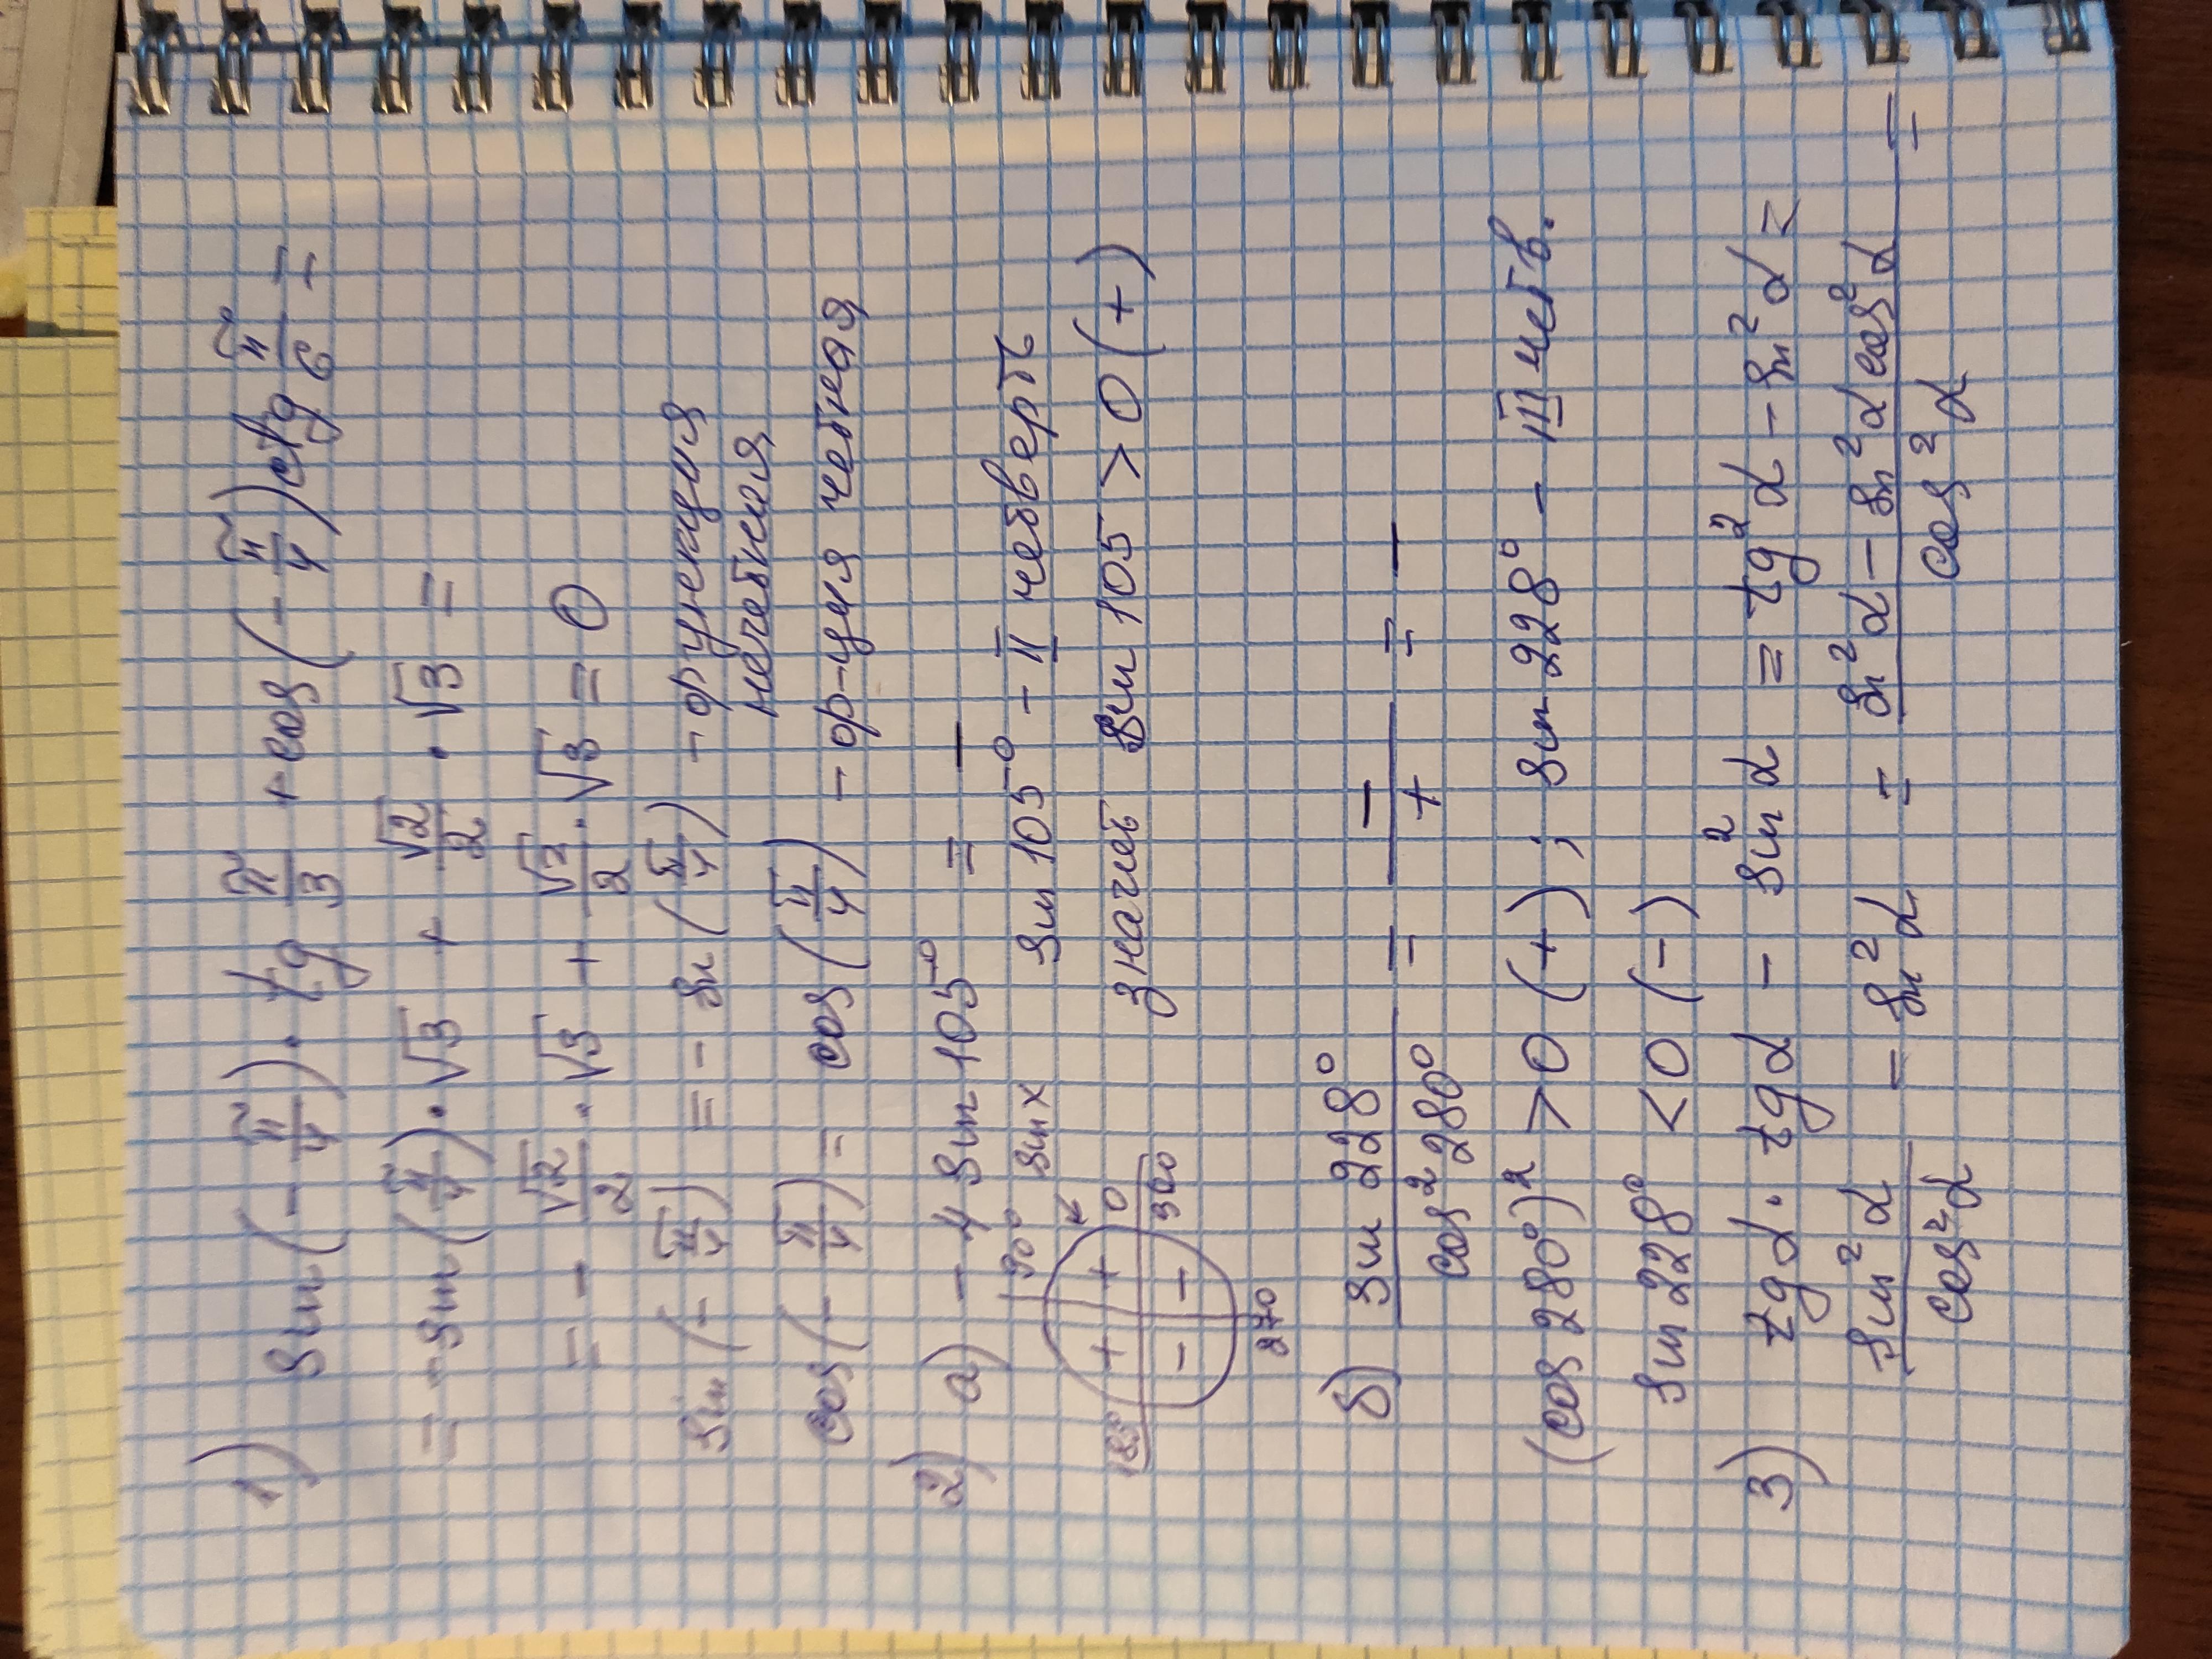 1) sin(-π/4)·tg π/3 + cos(-π/4)ctg π/6 =
= -sin(π/4)·√3 + √2/2 · √3 =
= - √2/2 · √3 + √2/2 · √3 = 0
sin(-π/4) = - sin(π/4) - функция
нечетная
cos(-π/4) = cos(π/4) - ф-ция четная
2) а) - 4 sin 105° = -
90° sin x sin 105° - II четверть
+ + 0
180° 360 значет sin 105 > 0 (+)
- -
270
б) sin 228° / cos² 280° = - / + = -
(cos 280°)² > 0 (+) ; sin 228° - III четв.
sin 228° < 0 (-)
3) tg α · tg α - sin² α = tg² α - sin² α =
sin² α / cos² α - sin² α = sin² α - sin² α cos² α / cos² α =